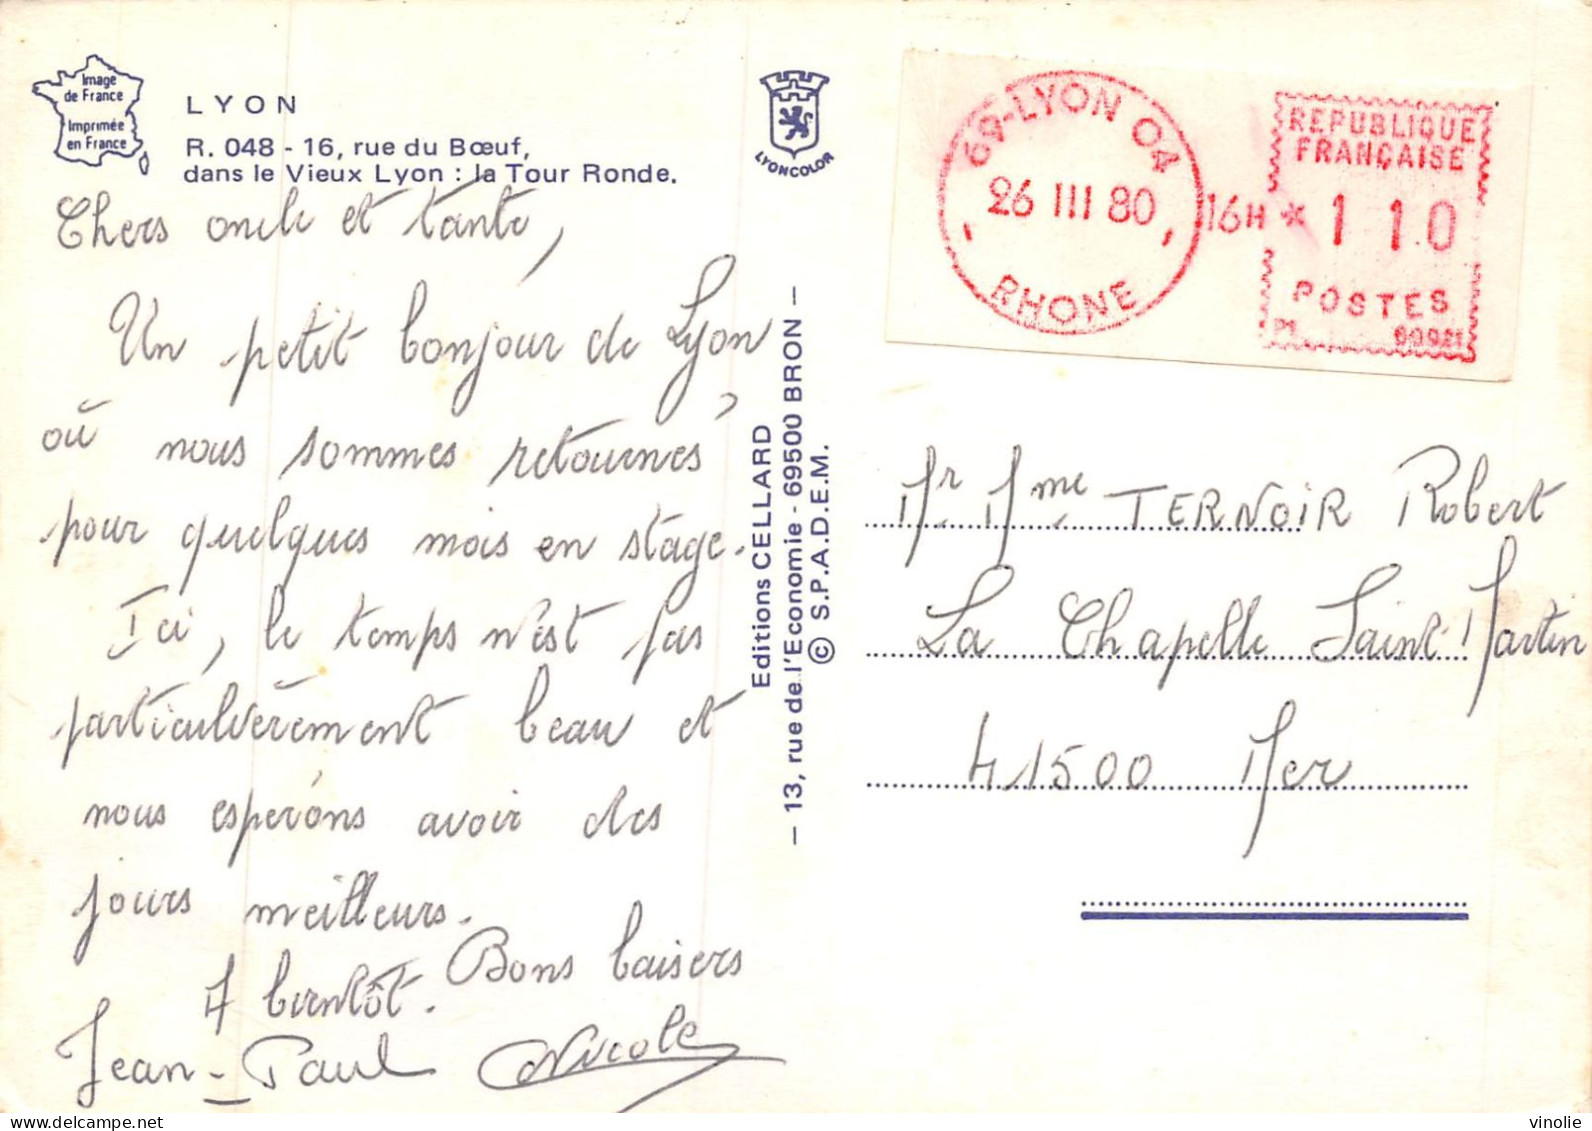 Image
de France
Imprimée
en France
LYON
R. 048 - 16, rue du Bœuf,
dans le Vieux Lyon : la Tour Ronde.
LYONCOLOR
Chers oncle et tante,
Un petit bonjour de Lyon,
où nous sommes retournés
pour quelques mois en stage.
Ici, le temps n'est pas
particulièrement beau et
nous espérons avoir des
jours meilleurs.
A bientôt. Bons baisers
Jean-Paul Nicole
Editions CELLARD
- 13, rue de l'Economie - 69500 BRON -
© S.P.A.D.E.M.
69-LYON 04
26 III 80 16H
- RHONE -
REPUBLIQUE
FRANÇAISE
* 1 10
POSTES
Mr Mme TERNOIR Robert
La Chapelle Saint-Martin
41500 Mer
vinolie